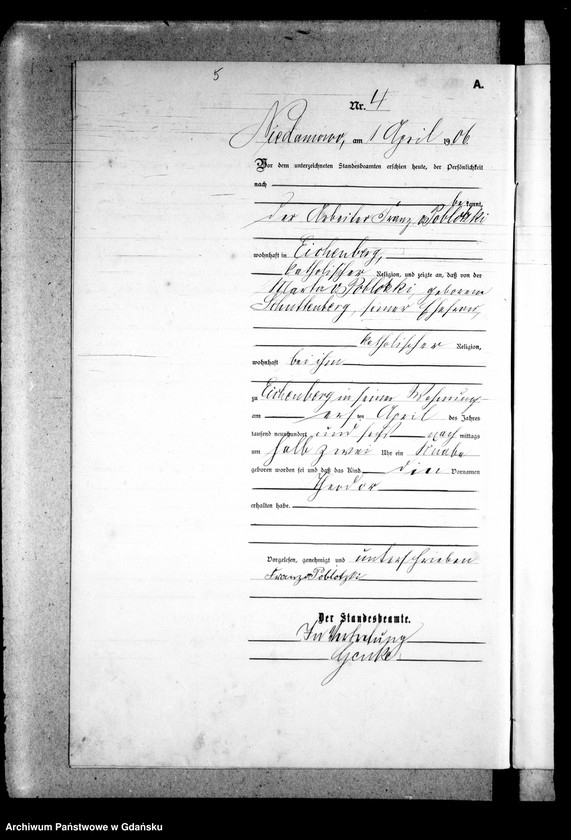 5
A.
Nr. 4
Niedamowo, am 1 April 1906.
Vor dem unterzeichneten Standesbeamten erschien heute, der Persönlichkeit
nach
bekannt,
der Arbeiter Franz v. Poblotzki
wohnhaft in Eichenberg,
katholischer Religion, und zeigte an, daß von der
Marta v. Poblotzki geborene
seiner Ehefrau,
katholischer Religion,
wohnhaft bei ihm
zu Eichenberg in seiner Wohnung
am ersten April des Jahres
tausend neunhundert und sechs nach mittags
um halb zwei Uhr ein Knabe
geboren worden sei und daß das Kind den Vornamen
Theodor
erhalten habe.
Vorgelesen, genehmigt und unterschrieben
Franz v Poblotzki
Der Standesbeamte.
In Vertretung
Archiwum Państwowe w Gdańsku